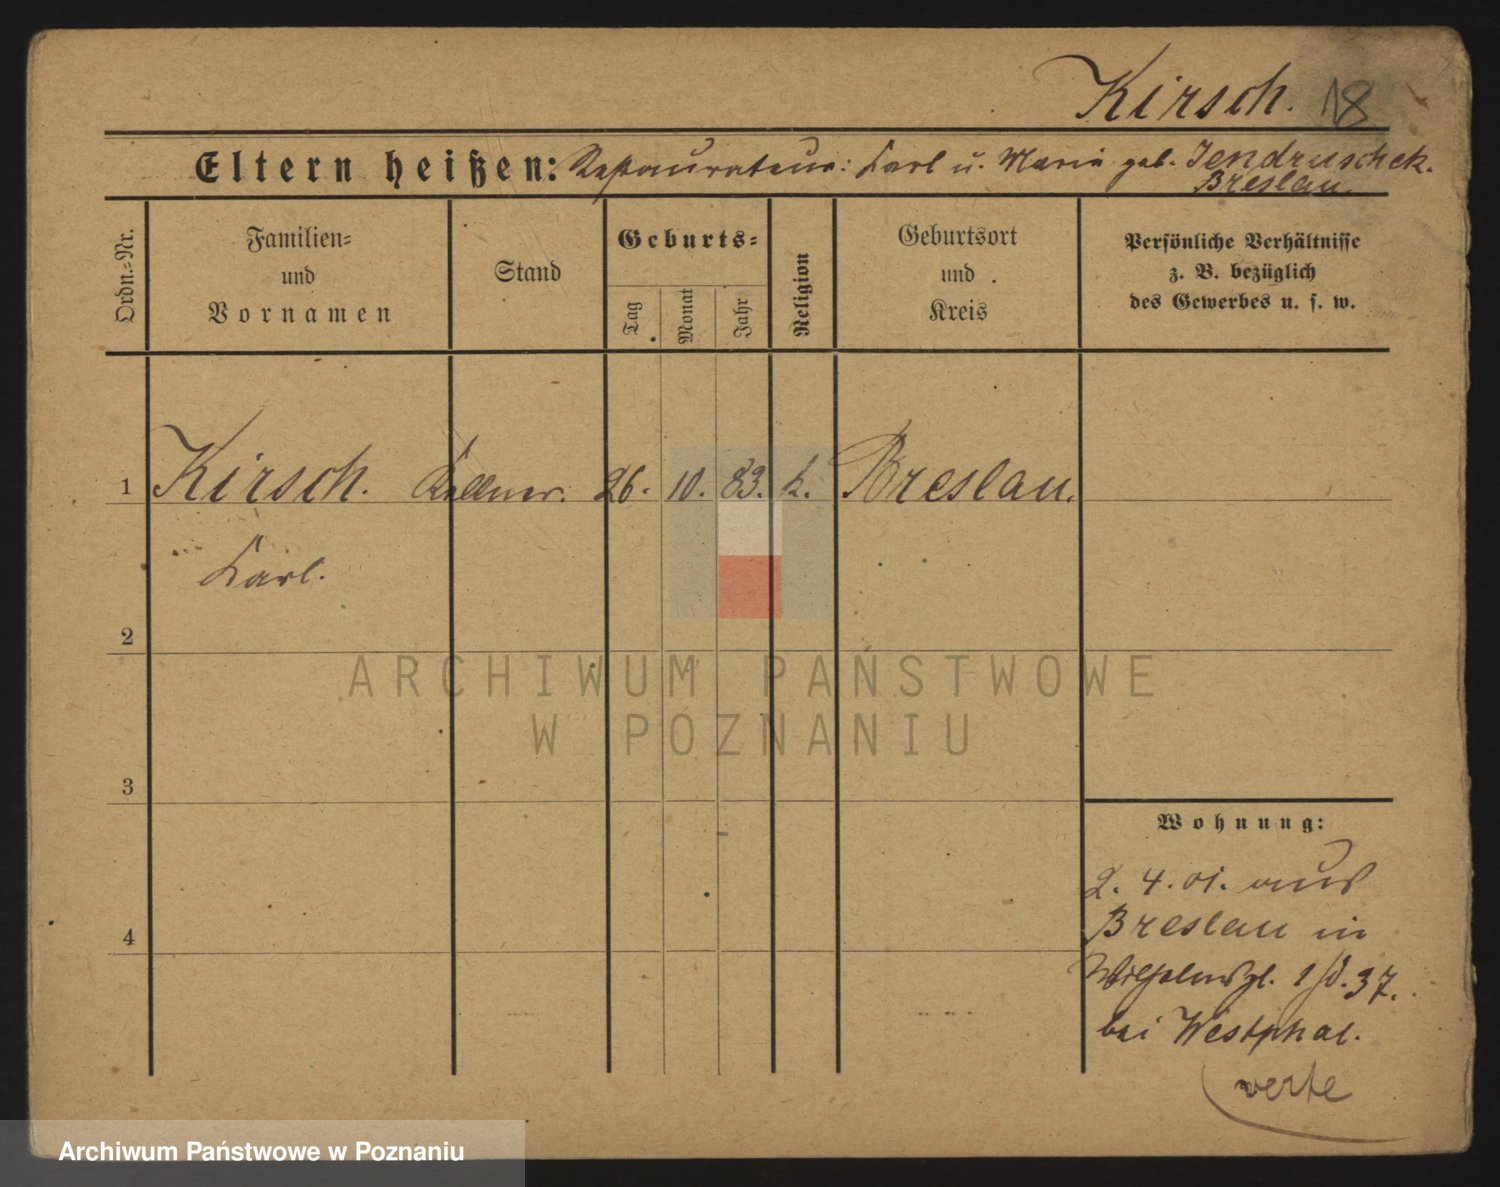 Kirsch. 18
Eltern heißen: Restaurateur: Karl u. Maria geb. Jendruschek.
Breslau.
Ordn.=Nr.
Familien=
und
Vornamen
Stand
Geburts=
Tag
Monat
Jahr
Religion
Geburtsort
und
Kreis
Persönliche Verhältnisse
z. B. bezüglich
des Gewerbes u. s. w.
1 Kirsch. Kellner. 26. 10. 83. k. Breslau.
Karl.
2
3
4
Wohnung:
2. 4. 01. aus
Breslau in
Wilhelmspl. 37.
bei Westphal.
verte
ARCHIWUM PAŃSTWOWE
W POZNANIU
Archiwum Państwowe w Poznaniu